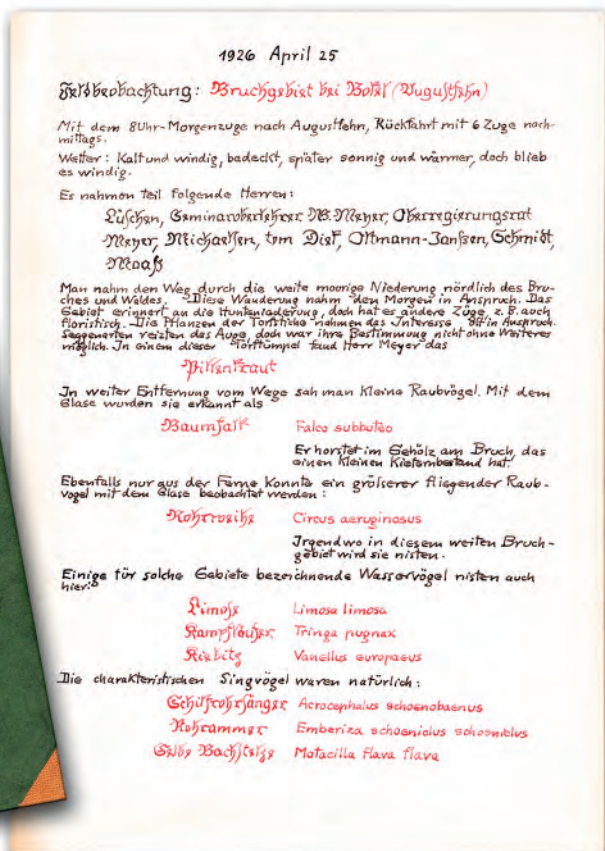 1926 April 25
Feldbeobachtung: Bruchgebiet bei Bokel (Augustfehn)
Mit dem 8Uhr-Morgenzuge nach Augustfehn, Rückfahrt mit 6 Zuge nach-
mittags.
Wetter: Kalt und windig, bedeckt, später sonnig und wärmer, doch blieb
es windig.
Es nahmen teil folgende Herren:
Lüschen, Seminaroberlehrer W. Meyer, Oberregierungsrat
Meyer, Michaelsen, tom Diek, Oltmann-Janssen, Schmidt,
Maass
Man nahm den Weg durch die weite moorige Niederung nördlich des Bru-
ches und Waldes. Diese Wanderung nahm den Morgen in Anspruch. Das
Gebiet erinnert an die Hunteniederung, doch hat es andere Züge, z.B. auch
floristisch. Die Pflanzen der Torfstiche nahmen das Interesse oft in Anspruch.
Seggenarten reizten das Auge, doch war ihre Bestimmung nicht ohne Weiteres
möglich. In einem dieser Torftümpel fand Herr Meyer das
Pillenkraut
In weiter Entfernung vom Wege sah man kleine Raubvögel. Mit dem
Glase wurden sie erkannt als
Baumfalk Falco subbuteo
Er horstet im Gehölz am Bruch, das
einen kleinen Kiefernbestand hat.
Ebenfalls nur aus der Ferne konnte ein grösserer fliegender Raub-
vogel mit dem Glase beobachtet werden:
Rohrweihe Circus aeruginosus
Irgendwo in diesem weiten Bruch-
gebiet wird sie nisten.
Einige für solche Gebiete bezeichnende Wasservögel nisten auch
hier:
Limose Limosa limosa
Kampfläufer Tringa pugnax
Kiebitz Vanellus europaeus
Die charakteristischen Singvögel waren natürlich:
Schilfrohrsänger Acrocephalus schoenobaenus
Rohrammer Emberiza schoeniclus schoeniclus
Gelbe Bachstelze Motacilla flava flava